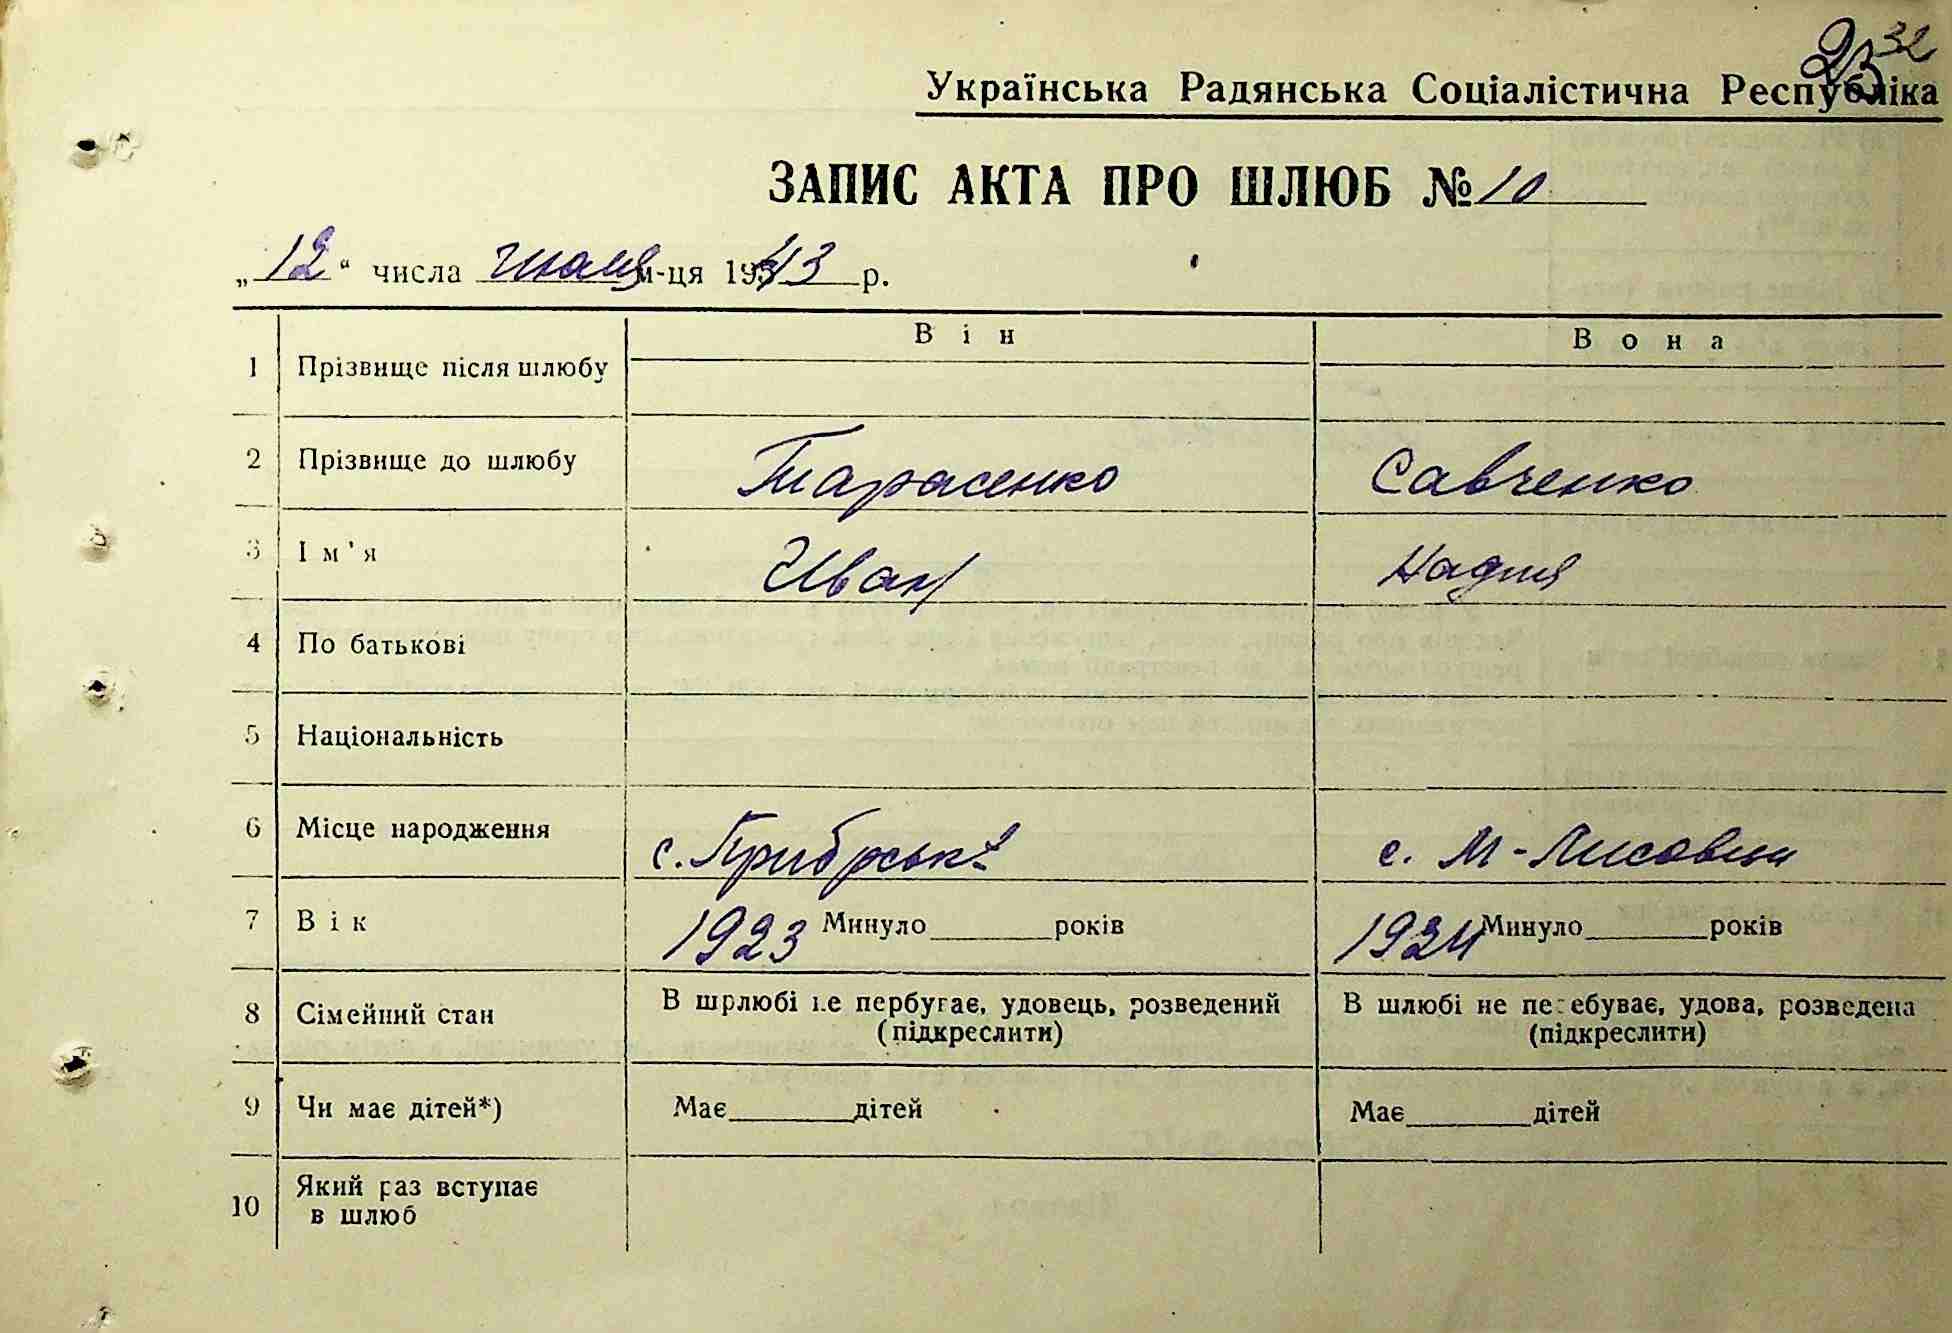 32
23
Українська Радянська Соціалістична Республіка
ЗАПИС АКТА ПРО ШЛЮБ № 10
„12“ числа Июля м-ця 1943 р.
Він Вона
1 Прізвище після шлюбу
2 Прізвище до шлюбу Тарасенко Савченко
3 Ім'я Иван Надия
4 По батькові
5 Національність
6 Місце народження с. с. М-Лисовцы
7 Вік 1923 Минуло____років 1924 Минуло____років
8 Сімейний стан В шрлюбі не пербугає, удовець, розведений (підкреслити) В шлюбі не перебуває, удова, розведена (підкреслити)
9 Чи має дітей*) Має____дітей Має____дітей
10 Який раз вступає
в шлюб